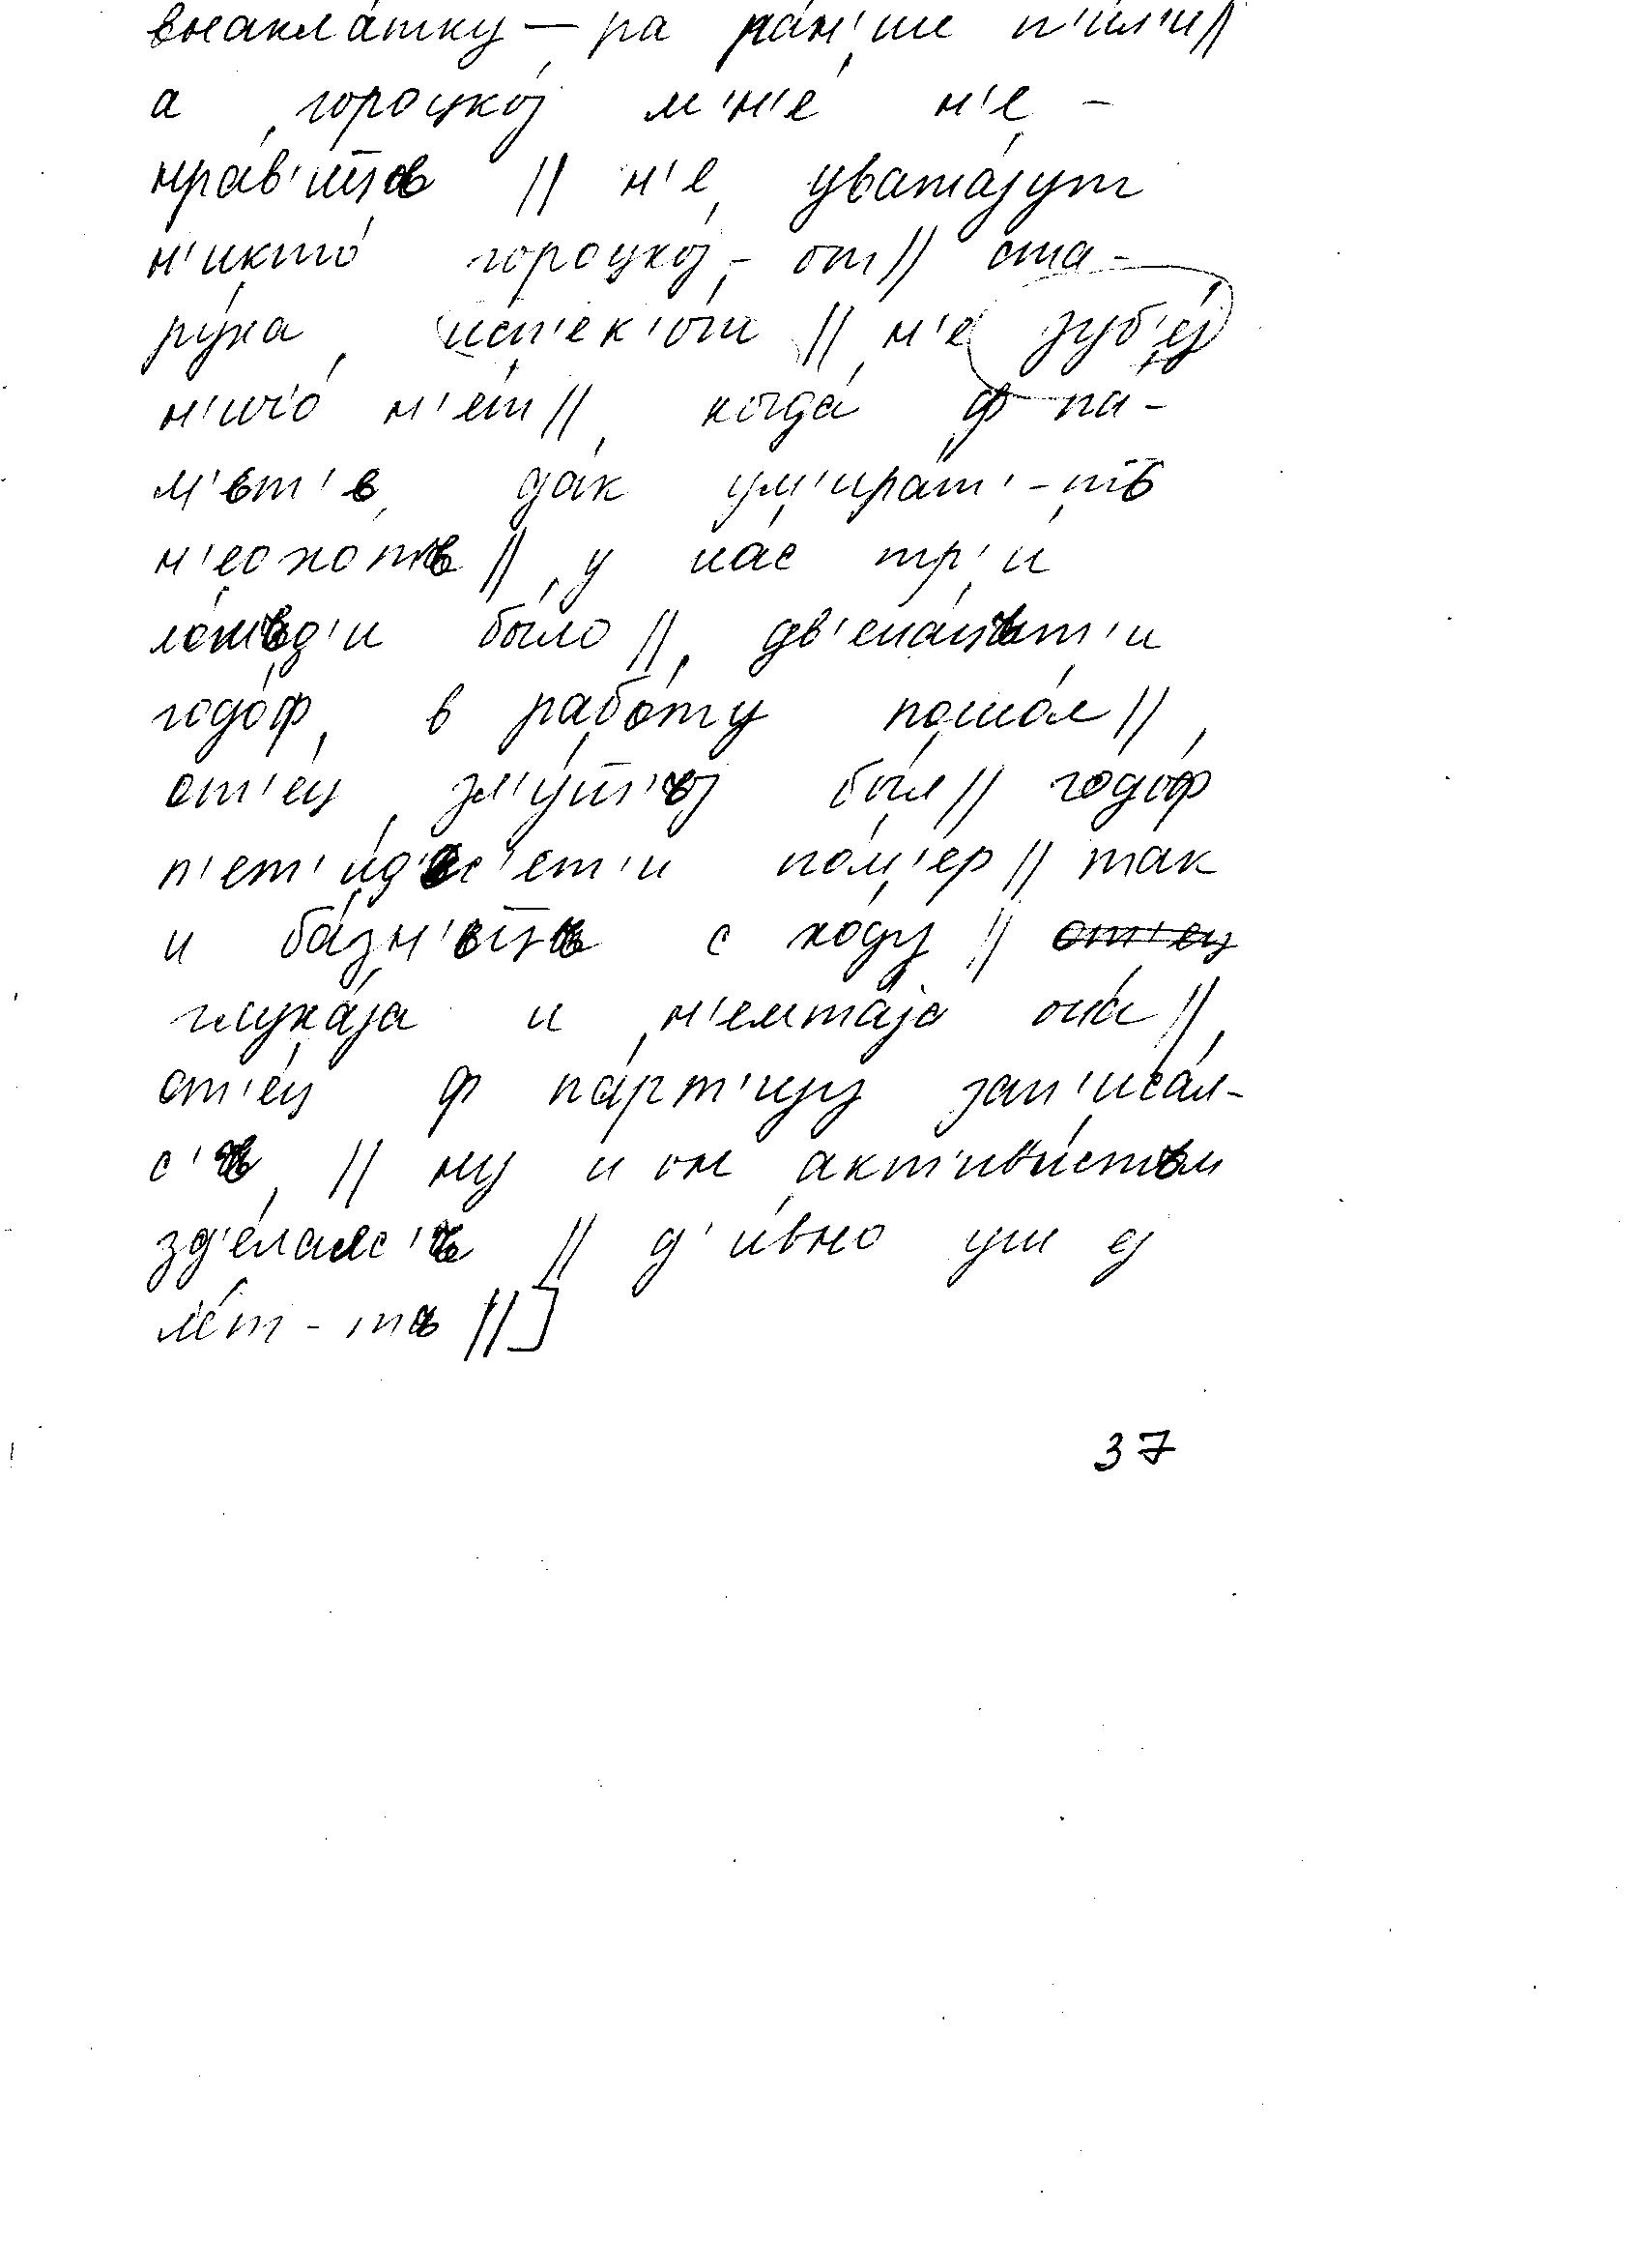 внакла́тку — ра ра́н'ше п'и́л'и //
а городцкој м'н'е́ н'е -
нра́в'ицъ // н'е уважа́јут
н'икто́ гороцкој - от // ста -
ру́ха исп'ек'о́т // н'е зуб'е́ј
н'ичо́ н'е́т // когда́ ф па́ -
м'ьт'ь да́к ум'ира́т' - тъ
н'еохо́тъ // у на́с тр'и́
ло́шъд'и бы́ло // дв'ена́цът'и
годо́ф в рабо́ту пошо́л //
от'е́ц был // годо́ф
п'ет'и́д'ес'ет'и по́м'ер // так
и ба́зн'ицъ с хо́ду // ~~от'ец~~
глуха́ја и н'емта́ја она́ //
от'е́ц ф па́рт'ију зап'иса́л -
с'ъ // ну и он акт'иви́стъм
зд'е́лалс'ъ // д'и́вно уш еј
ле́т - тъ // ]
37